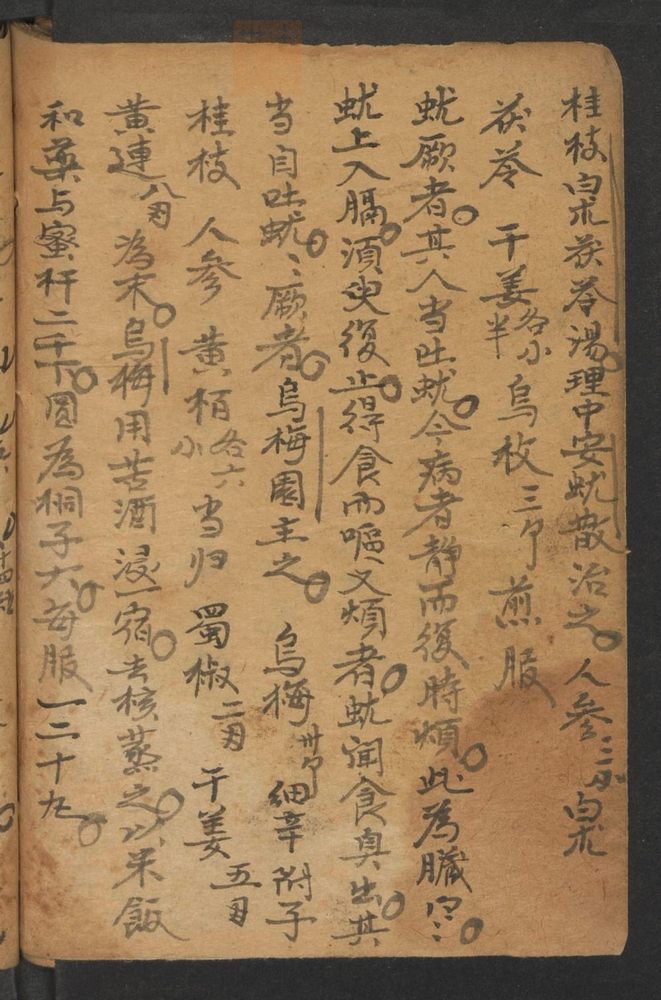 桂枝白朮茯苓湯理中安蚘散治之人参三分白朮
茯苓 干姜各小半烏枚三个煎服
蚘厥者其人当吐蚘今病者静而復時煩此為臟
蚘上入膈須臾復止得食而嘔又煩者蚘闻食臭出其
当自吐蚘〻厥者烏梅圓主之 烏梅卅个細辛附子
桂枝 人参 黄栢各六小当归 蜀椒二 干姜五
黄連八 為末烏梅用苦酒浸一宿去核蒸之以米飯
和藥与蜜杵二千下圓為桐子大每服一二十丸